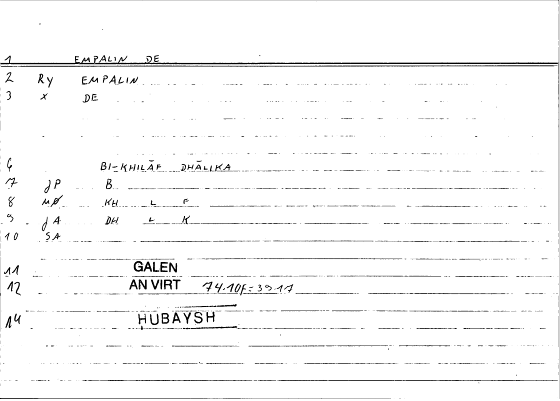 1 EMPALIN DE
2 Ry EMPALIN
3 x DE
6 BI-KHILĀF DHĀLIKA
7 JP B
8 MØ KH L F
9 JA DH L K
10 SA
11 GALEN
12 AN VIRT 74.10f=39.17
14 HUBAYSH